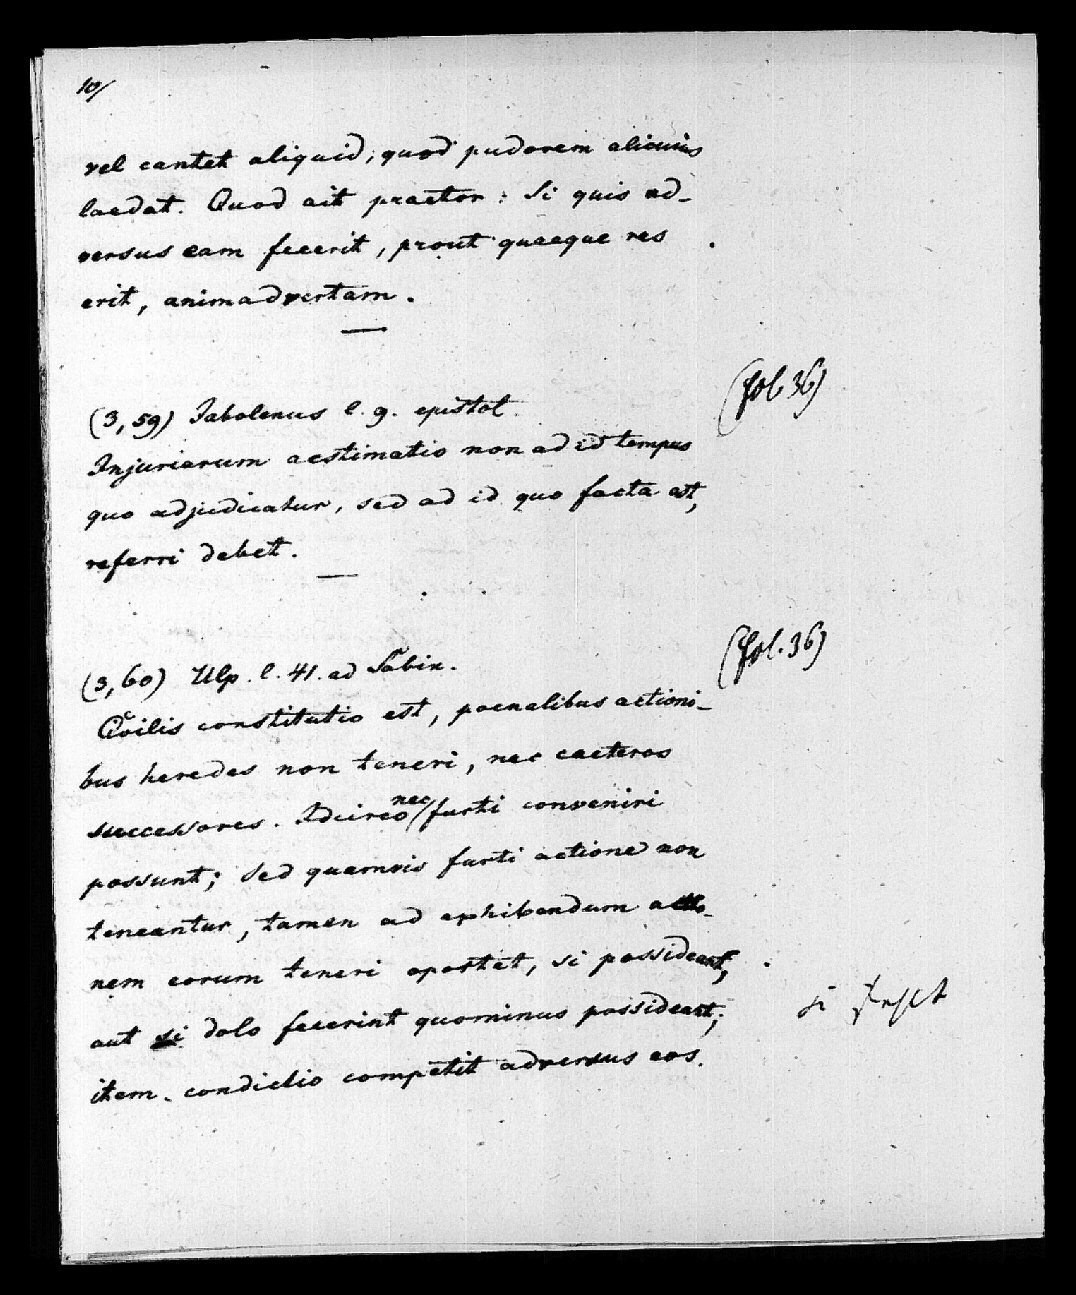 10/
vel cantet aliquid, quod pudorem alicuius
laedat. Quod ait praetor: Si quis ad-
versus eam fecerit, prout quaeque res
erit, animadvertam.
(fol. 36)
(3,59) Iabolenus l. 9. epistol.
Injuriarum aestimatio non ad id tempus
quo adjudicatur, sed ad id quo facta est,
referri debet.
(fol. 36)
(3,60) Ulp. l. 41. ad Sabin.
Civilis constitutio est, poenalibus actioni-
bus heredes non teneri, nec caeteros
successores. Idcirco nec furti conveniri
possunt; sed quamvis furti actione non
teneantur, tamen ad exhibendum actio-
nem eorum teneri oportet, si possideant,
aut si dolo fecerint quominus possideant;
si
item condictio competit adversus eos.